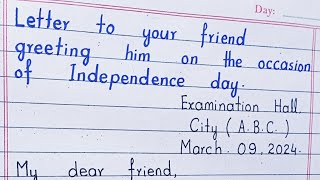 Day:
Letter to your friend
greeting him on the occasion
of Independence day.
Examination Hall,
City (A.B.C.)
March. 09, 2024.
My dear friend,